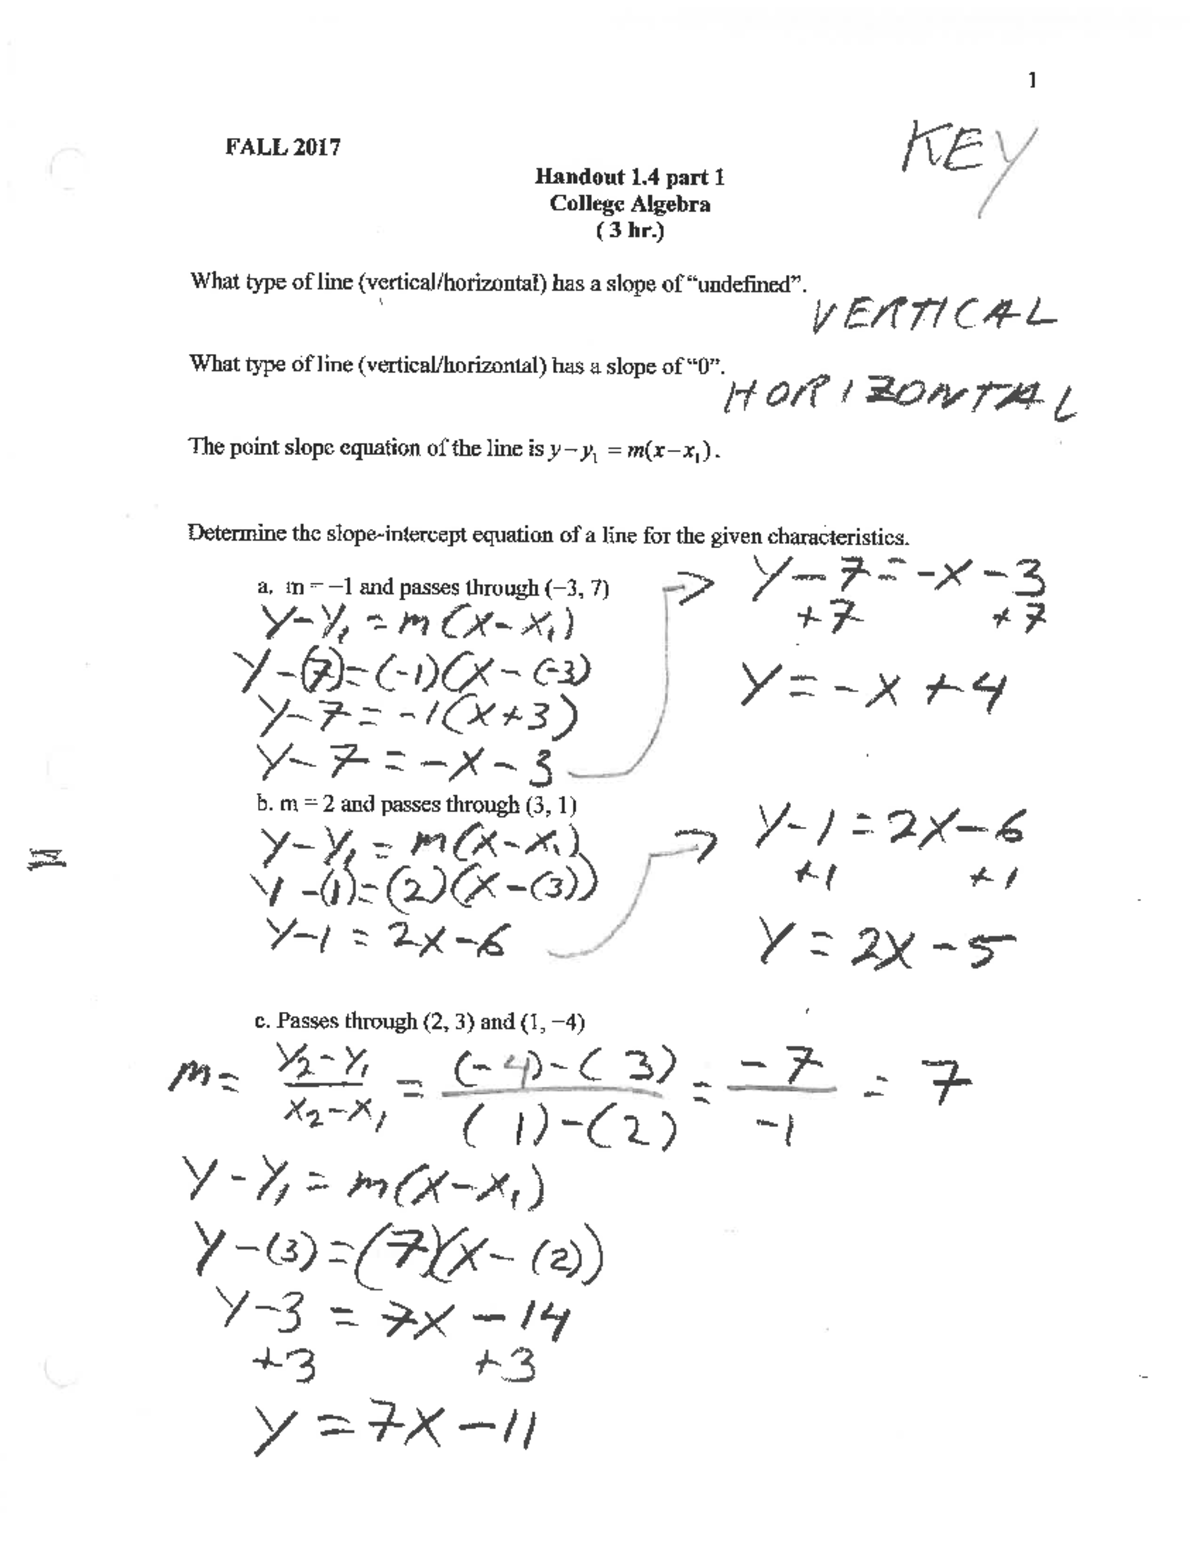 1
FALL 2017
KEY
Handout 1.4 part 1
College Algebra
( 3 hr.)
What type of line (vertical/horizontal) has a slope of “undefined”.
VERTICAL
What type of line (vertical/horizontal) has a slope of “0”.
HORIZONTAL
The point slope equation of the line is y − y₁ = m(x − x₁).
Determine the slope-intercept equation of a line for the given characteristics.
a. m = −1 and passes through (−3, 7)
y − y₁ = m(x − x₁)
y − (7) = (-1)(x − (-3)
y − 7 = -1(x + 3)
y − 7 = -x − 3
y − 7 = -x − 3
+7 +7
y = -x + 4
b. m = 2 and passes through (3, 1)
y − y₁ = m(x − x₁)
y − (1) = (2)(x − (3))
y − 1 = 2x − 6
y − 1 = 2x − 6
+1 +1
y = 2x − 5
c. Passes through (2, 3) and (1, −4)
m = y₂ − y₁ / x₂ − x₁ = (-4) − (3) / (1) − (2) = -7 / -1 = 7
y − y₁ = m(x − x₁)
y − (3) = (7)(x − (2))
y − 3 = 7x − 14
+3 +3
y = 7x − 11